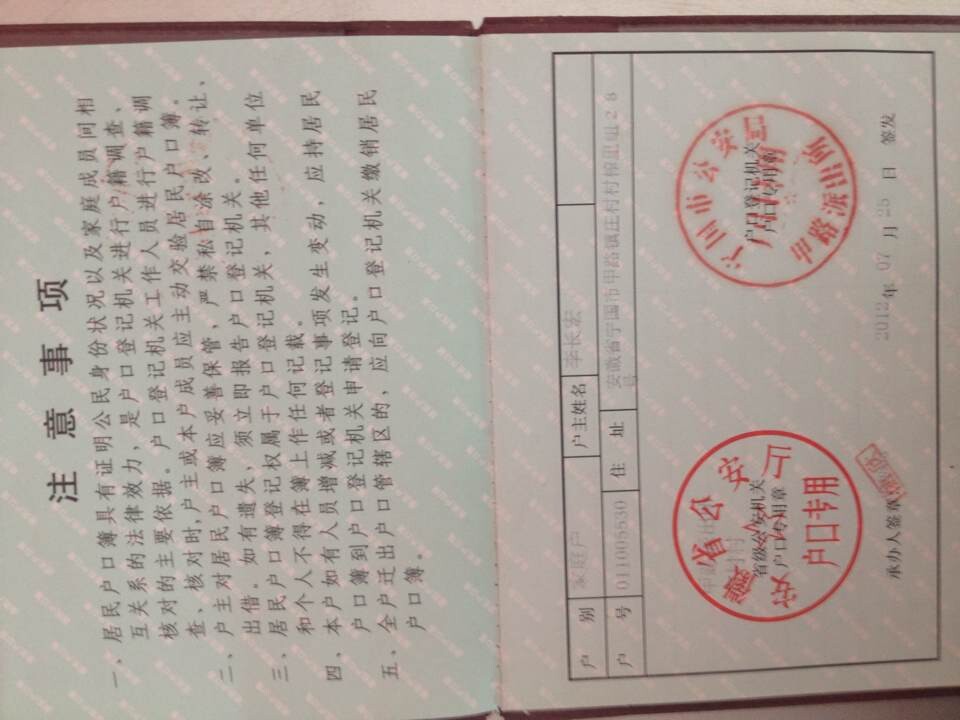 注意事项
一、居民户口簿具有证明公民身份状况以及家庭成员间相
互关系的法律效力，是户口登记机关进行户籍调查、
核对的主要依据。户口登记机关工作人员进行户籍调
查、核对时，户主或本户成员应主动交验居民户口簿。
二、户主对居民户口簿应妥善保管，严禁私自涂改、转让、
出借。如有遗失，须立即报告户口登记机关。
三、居民户口簿登记权属于户口登记机关，其他任何单位
和个人不得在簿上作任何记载。
四、本户如有人员增减或者登记事项发生变动，应持居民
户口簿到户口登记机关申请登记。
五、全户迁出户口管辖区的，应向户口登记机关缴销居民
户口簿。
户别 家庭户 户主姓名 李长宏
户号 011005830 住址 安徽省宁国市甲路镇庄村村榨里组28
号
安徽省公安厅
省级公安机关
户口专用章
户口专用
宁国市公安局
户口登记机关
户口专用章
甲路派出所
承办人签章
2012年07月25日 签发